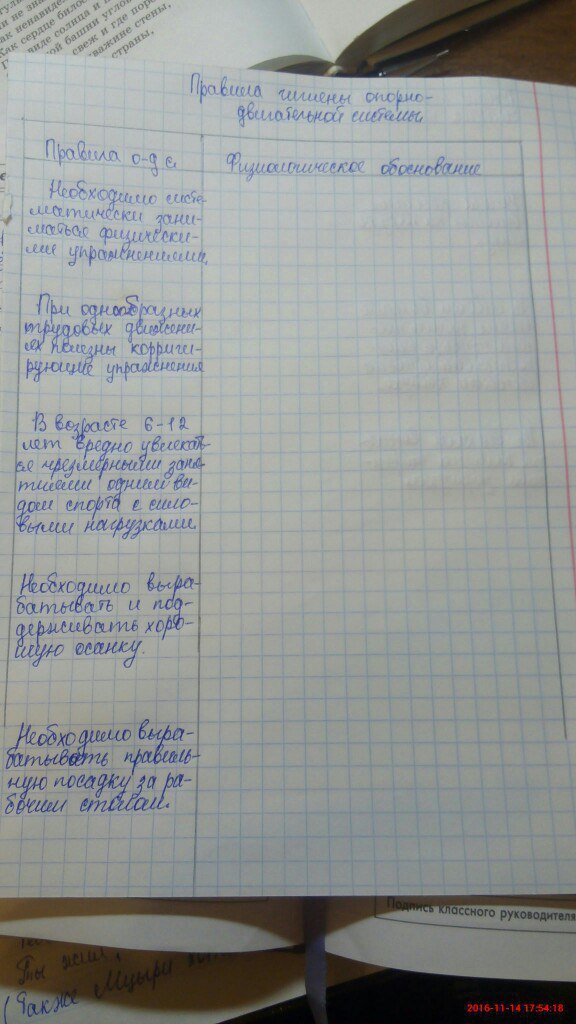 как ненавидел
Как сердце билось
виде солнца и
свеж и где порой
башни угловой
страны,
Правила гигиены опорно-
двигательной системы
Правила о-д с.
Физиологическое обоснование
Необходимо систе-
матически зани-
маться физически-
ми упражнениями.
При однообразных
трудовых движени-
ях полезны корриги-
рующие упражнения
В возрасте 6-12
лет вредно увлекать-
ся чрезмерными заня-
тиями одним ви-
дом спорта с сило-
выми нагрузками.
Необходимо выра-
батывать и под-
держивать хоро-
шую осанку.
Необходимо выра-
батывать правиль-
ную посадку за ра-
бочим столом.
Подпись классного руководителя
Ты жил,
(Также Мцыри
2016-11-14 17:54:18